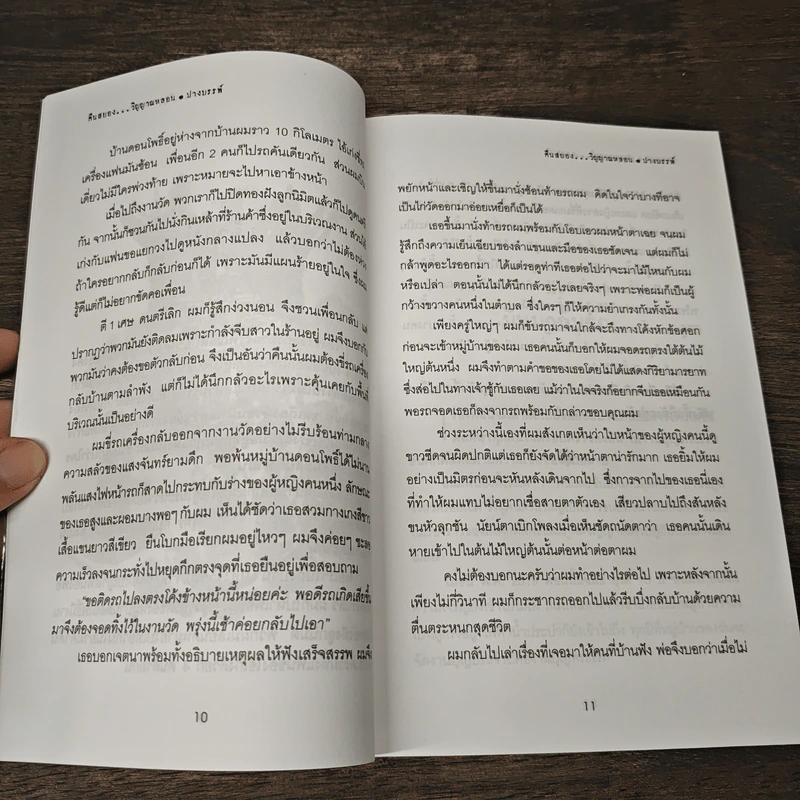 คืนสยอง...วิญญาณหลอน ● ปางบรรพ์
บ้านดอนโพธิ์อยู่ห่างจากบ้านผมราว 10 กิโลเมตร ไอ้เก่งขี่รถ
เครื่องแฟนมันซ้อน เพื่อนอีก 2 คนก็ไปรถคันเดียวกัน ส่วนผมไป
เดี่ยวไม่มีใครพ่วงท้าย เพราะหมายจะไปหาเอาข้างหน้า
เมื่อไปถึงงานวัด พวกเราก็ไปปิดทองฝังลูกนิมิตแล้วก็ไปดูดนตรี
กัน จากนั้นก็ชวนกันไปนั่งกินเหล้าที่ร้านค้าซึ่งอยู่ในบริเวณงาน ส่วนไอ้
เก่งกับแฟนขอแยกวงไปดูหนังกลางแปลง แล้วบอกว่าไม่ต้องห่วง
ถ้าใครอยากกลับก็กลับก่อนก็ได้ เพราะมันมีแผนร้ายอยู่ในใจ ซึ่งผม
รู้ดีแต่ก็ไม่อยากขัดคอเพื่อน
ตี 1 เศษ ดนตรีเลิก ผมก็รู้สึกง่วงนอน จึงชวนเพื่อนกลับ แต่
ปรากฏว่าพวกมันยังติดลมเพราะกำลังจีบสาวในร้านอยู่ ผมจึงบอกกับ
พวกมันว่าคงต้องขอตัวกลับก่อน จึงเป็นอันว่าคืนนั้นผมต้องขี่รถเครื่อง
กลับบ้านตามลำพัง แต่ก็ไม่ได้นึกกลัวอะไรเพราะคุ้นเคยกับพื้นที่
บริเวณนั้นเป็นอย่างดี
ผมขี่รถเครื่องกลับออกจากงานวัดอย่างไม่รีบร้อนท่ามกลาง
ความสลัวของแสงจันทร์ยามดึก พอพ้นหมู่บ้านดอนโพธิ์ได้ไม่นาน
พลันแสงไฟหน้ารถก็สาดไปกระทบกับร่างของผู้หญิงคนหนึ่ง ลักษณะ
ของเธอสูงและผอมบางพอๆ กับผม เห็นได้ชัดว่าเธอสวมกางเกงสีขาว
เสื้อแขนยาวสีเขียว ยืนโบกมือเรียกผมอยู่ไหวๆ ผมจึงค่อยๆ ชะลอ
ความเร็วลงจนกระทั่งไปหยุดกึกตรงจุดที่เธอยืนอยู่เพื่อสอบถาม
“ขอติดรถไปลงตรงโค้งข้างหน้านี้หน่อยค่ะ พอดีรถเกิดเสียขึ้น
มาจึงต้องจอดทิ้งไว้ในงานวัด พรุ่งนี้เช้าค่อยกลับไปเอา”
เธอบอกเจตนาพร้อมทั้งอธิบายเหตุผลให้ฟังเสร็จสรรพ ผมจึง
10
คืนสยอง...วิญญาณหลอน ● ปางบรรพ์
พยักหน้าและเชิญให้ขึ้นมานั่งซ้อนท้ายรถผม คิดในใจว่าบางทีอาจ
เป็นไก่วัดออกมาอ่อยเหยื่อก็เป็นได้
เธอขึ้นมานั่งท้ายรถผมพร้อมกับโอบเอวผมหน้าตาเฉย จนผม
รู้สึกถึงความเย็นเฉียบของลำแขนและมือของเธอชัดเจน แต่ผมก็ไม่
กล้าพูดอะไรออกมา ได้แต่รอดูท่าทีเธอต่อไปว่าจะมาไม้ไหนกับผม
หรือเปล่า ตอนนั้นไม่ได้นึกกลัวอะไรเลยจริงๆ เพราะพ่อผมก็เป็นผู้
กว้างขวางคนหนึ่งในตำบล ซึ่งใครๆ ก็ให้ความยำเกรงกันทั้งนั้น
เพียงครู่ใหญ่ๆ ผมก็ขับรถมาจนใกล้จะถึงทางโค้งหักข้อศอก
ก่อนจะเข้าหมู่บ้านของผม เธอคนนั้นก็บอกให้ผมจอดรถตรงใต้ต้นไม้
ใหญ่ต้นหนึ่ง ผมจึงทำตามคำขอของเธอโดยไม่ได้แสดงกิริยามารยาท
ซึ่งส่อไปในทางเจ้าชู้กับเธอเลย แม้ว่าในใจจริงก็อยากจีบเธอเหมือนกัน
พอรถจอดเธอก็ลงจากรถพร้อมกับกล่าวขอบคุณผม
ช่วงระหว่างนี้เองที่ผมสังเกตเห็นว่าใบหน้าของผู้หญิงคนนี้ดู
ขาวซีดจนผิดปกติแต่เธอก็ยังจัดได้ว่าหน้าตาน่ารักมาก เธอยิ้มให้ผม
อย่างเป็นมิตรก่อนจะหันหลังเดินจากไป ซึ่งการจากไปของเธอนี่เอง
ที่ทำให้ผมแทบไม่อยากเชื่อสายตาตัวเอง เสียวปลาบไปถึงสันหลัง
ขนหัวลุกชัน นัยน์ตาเบิกโพลงเมื่อเห็นชัดถนัดตาว่า เธอคนนั้นเดิน
หายเข้าไปในต้นไม้ใหญ่ต้นนั้นต่อหน้าต่อตาผม
คงไม่ต้องบอกนะครับว่าผมทำอย่างไรต่อไป เพราะหลังจากนั้น
เพียงไม่กี่วินาที ผมก็กระชากรถออกไปแล้วรีบบึ่งกลับบ้านด้วยความ
ตื่นตระหนกสุดชีวิต
ผมกลับไปเล่าเรื่องที่เจอมาให้คนที่บ้านฟัง พ่อจึงบอกว่าเมื่อไม่
11